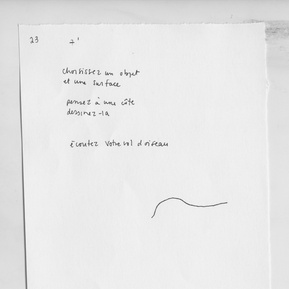 23 7'
choisissez un objet
et une surface
pensez à une côte
dessinez-la
Ecoutez votre vol d'oiseau